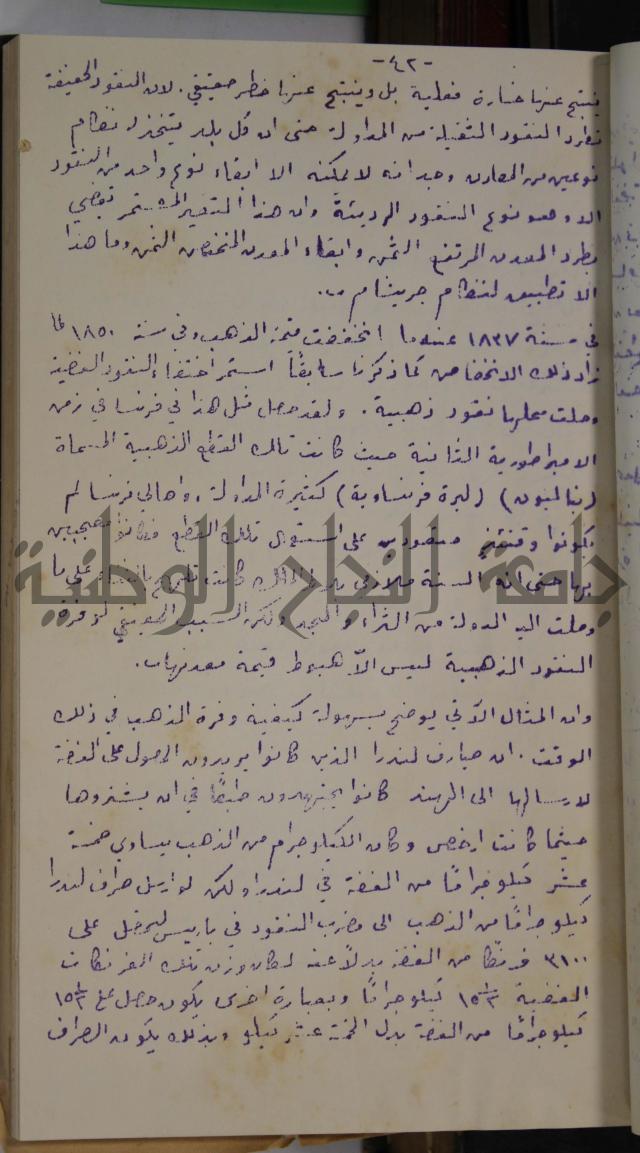 -٤٢-
ينتج عنها خسارة فعلية بل وينتج عنها خطر حقيقي. لان النقود الخفيفة
تطرد النقود الثقيلة من المداولة حتى ان كل بلد يتخذ له نظام
نوعين من المعادن وجد انه لا يمكنه الا ابقاء نوع واحد من النقود
الا وهو نوع النقود الرديئة وان هذا التغير المستمر يقضي
بطرد المعدن المرتفع الثمن وابقاء المعدن المنخفض الثمن وما هذا
الا تطبيق لنظام جريشام
في سنة ١٨٤٧ عندما انخفضت قيمة الذهب وفي سنة ١٨٥٠ لما
زاد ذلك الانخفاض كما ذكرنا سابقًا استمر اختفاء النقود الفضية
وحلت محلها نقود ذهبية. ولقد حصل مثل هذا في فرنسا في زمن
الامبراطورية الثانية حيث كانت تلك القطع الذهبية المسماة
(نابليون) (ليرة فرنساوية) كثيرة المداولة، واهالي فرنسا لم
يكونوا وقتئذٍ متعودين على استعمال تلك القطع فكانوا معجبين
بها حتى ان السنة كانت تلهج بالثناء على ما
وصلت اليه الدولة من الثراء والمجد ولكن السبب الحقيقي لوفرة
النقود الذهبية ليس الاّ هبوط قيمة معدنها.
وان المثال الآتي يوضح بسهولة كيفية وفرة الذهب في ذلك
الوقت. ان صيارف لندرا الذين كانوا يريدون الحصول على الفضة
لارسالها الى الهند كانوا يجتهدون طبعًا في ان يشتروها
حيثما كانت ارخص وكان الكيلوجرام من الذهب يساوي خمسة
عشر كيلوجرامًا من الفضة في لندرا ولكن لو ارسل صراف لندرا
كيلوجرامًا من الذهب الى مضرب النقود في باريس ليحصل على
٣١٠٠ فرنكًا من الفضة بدلاً عنه لكان وزن تلك الفرنكات
الفضية ١٥ ١/٢ كيلوجرامًا وبعبارة اخرى يكون حصل على ١٥ ١/٢
كيلوجرامًا من الفضة بدل الخمسة عشر كيلو وبذلك يكون الصراف
جامعة النجاح الوطنية